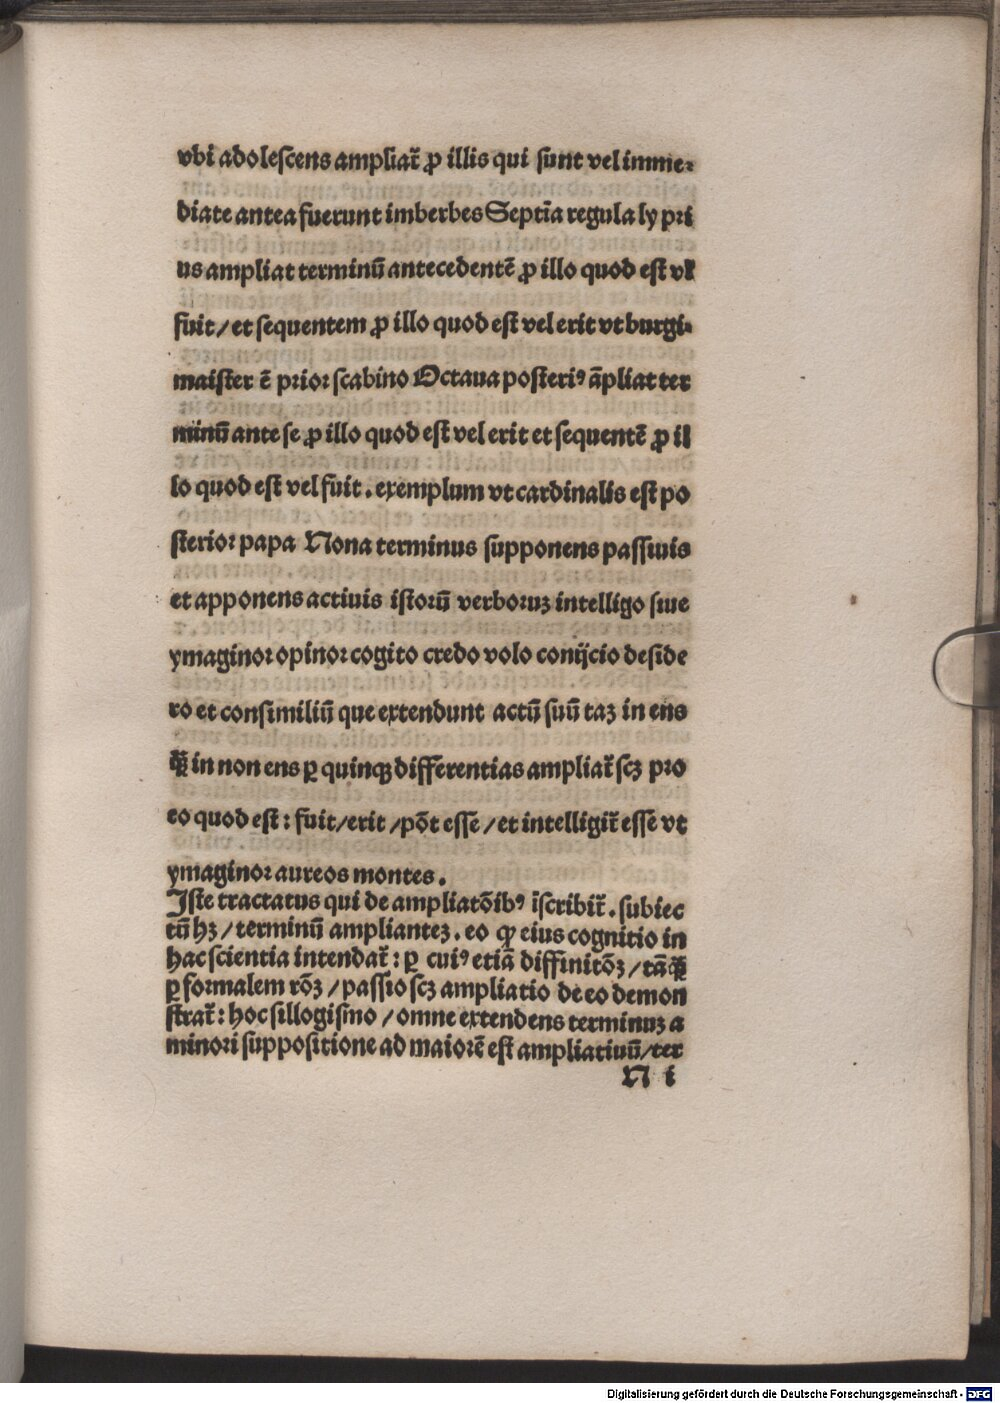 vbi adolescens ampliat̃ ꝓ illis qui sunt vel imme⸗
diate antea fuerunt imberbes Septĩa regula ly pri
us ampliat terminũ antecedentẽ ꝓ illo quod est vl̕
fuit/et sequentem ꝓ illo quod est vel erit vt burgi⸗
maister ẽ prior scabino Octaua posteriꝰ ãpliat ter
minũ ante se ꝓ illo quod est vel erit et sequentẽ ꝓ il
lo quod est vel fuit. exemplum vt cardinalis est po
sterior papa Nona terminus supponens passiuis
et apponens actiuis istorũ verboruꝫ intelligo siue
ymaginor opinor cogito credo volo conijcio deside
ro et consimiliũ que extendunt actũ suũ taꝫ in ens
ꝙ̃ in non ens ꝑ quinqꝫ differentias ampliat̃ scꝫ pro
eo quod est: fuit/erit/põt esse/et intelligit̃ esse vt
ymaginor aureos montes.
Iste tractatus qui de ampliatõibꝰ ĩscribit̃. subiec
tũ hꝫ/terminũ amplianteꝫ. eo ꝙ eius cognitio in
hac scientia intendat̃: ꝑ cuiꝰ etiã diffinitõꝫ/tãꝙ̃
ꝑ formalem rõꝫ/passio scꝫ ampliatio de eo demon
strat̃: hoc sillogismo/omne extendens terminuꝫ a
minori suppositione ad maiorẽ est ampliatiuũ/ter
N i
Digitalisierung gefördert durch die Deutsche Forschungsgemeinschaft - DFG